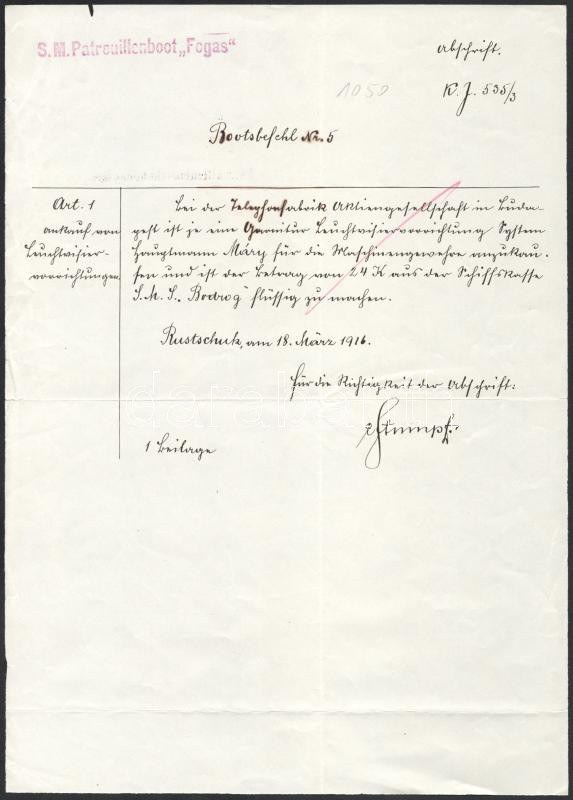 S. M. Patrouillenboot „Fogas“
Abschrift.
1050
K. J. 535/3
Bootsbefehl Nr. 5
Art. 1
Ankauf von
Leuchtvisier-
vorrichtungen.
Bei der Telephonfabrik Aktiengesellschaft in Buda-
pest ist je eine Garnitur Leuchtvisiervorrichtung System
Hauptmann Máry für die Maschinengewehre anzukau-
fen und ist der Betrag von 24 K aus der Schiffskasse
S. M. S. „Bodrog“ flüssig zu machen.
Rustschuk, am 18. März 1916.
Für die Richtigkeit der Abschrift:
Stumpf.
1 Beilage